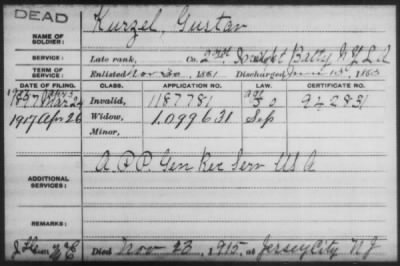 DEAD
NAME OF SOLDIER: Kurzel, Gustav
SERVICE: Late rank, Co. 23rd Indpt Batty N.Y. L.A
TERM OF SERVICE: Enlisted Nov 1861 Discharged 1865
DATE OF FILING. CLASS. APPLICATION NO. LAW. CERTIFICATE NO.
1897 Mar 24 Invalid, 1187781 942831
1917 Apr 26 Widow, 1,099631 Sep
Minor,
ADDITIONAL SERVICES: A.P.P. Gen Rec Serv USA
REMARKS:
Died Nov 23, 1915, at Jersey City N J